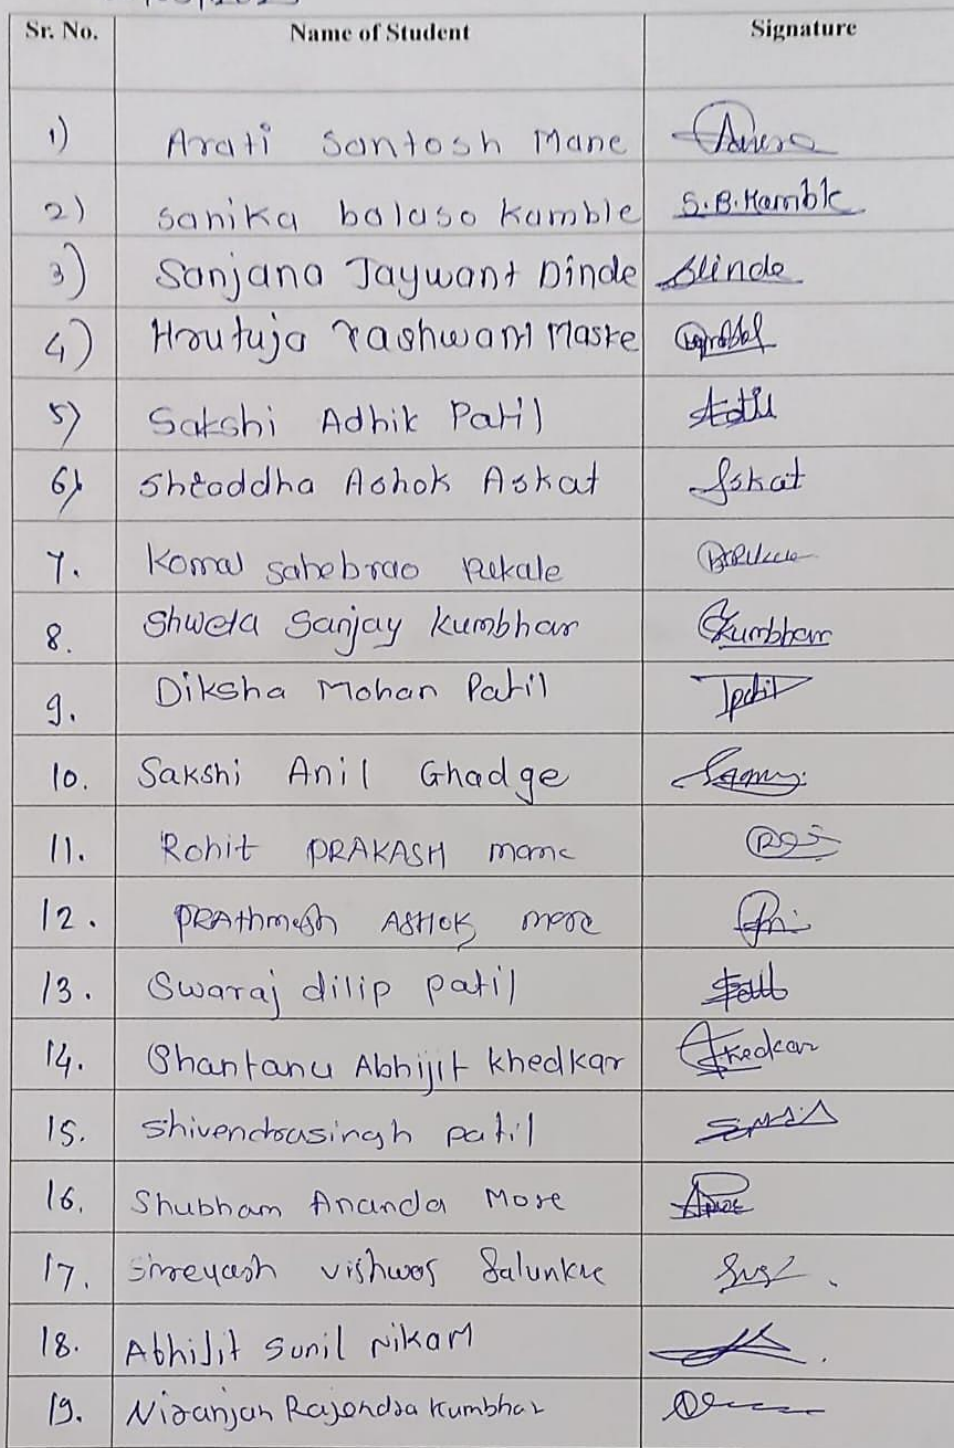 Sr. No. Name of Student Signature
1) Arati Santosh Mane
2) Sanika balaso Kamble S.B.Kamble
3) Sanjana Jaywant Dinde
4) Hrutuja Yashwant Maske
5) Sakshi Adhik Patil
6) Shraddha Ashok Askat Askat
7. Komal Sahebrao Pukale
8. Shweta Sanjay Kumbhar Kumbhar
9. Diksha Mohan Patil
10. Sakshi Anil Ghadge
11. Rohit PRAKASH mane
12. PRAthmesh ASHOK more
13. Swaraj dilip patil
14. Shantanu Abhijit khedkar khedkar
15. Shivendrasingh patil
16. Shubham Ananda More
17. Shreyash vishwas Salunkhe
18. Abhijit Sunil Nikam
19. Niranjan Rajendra Kumbhar